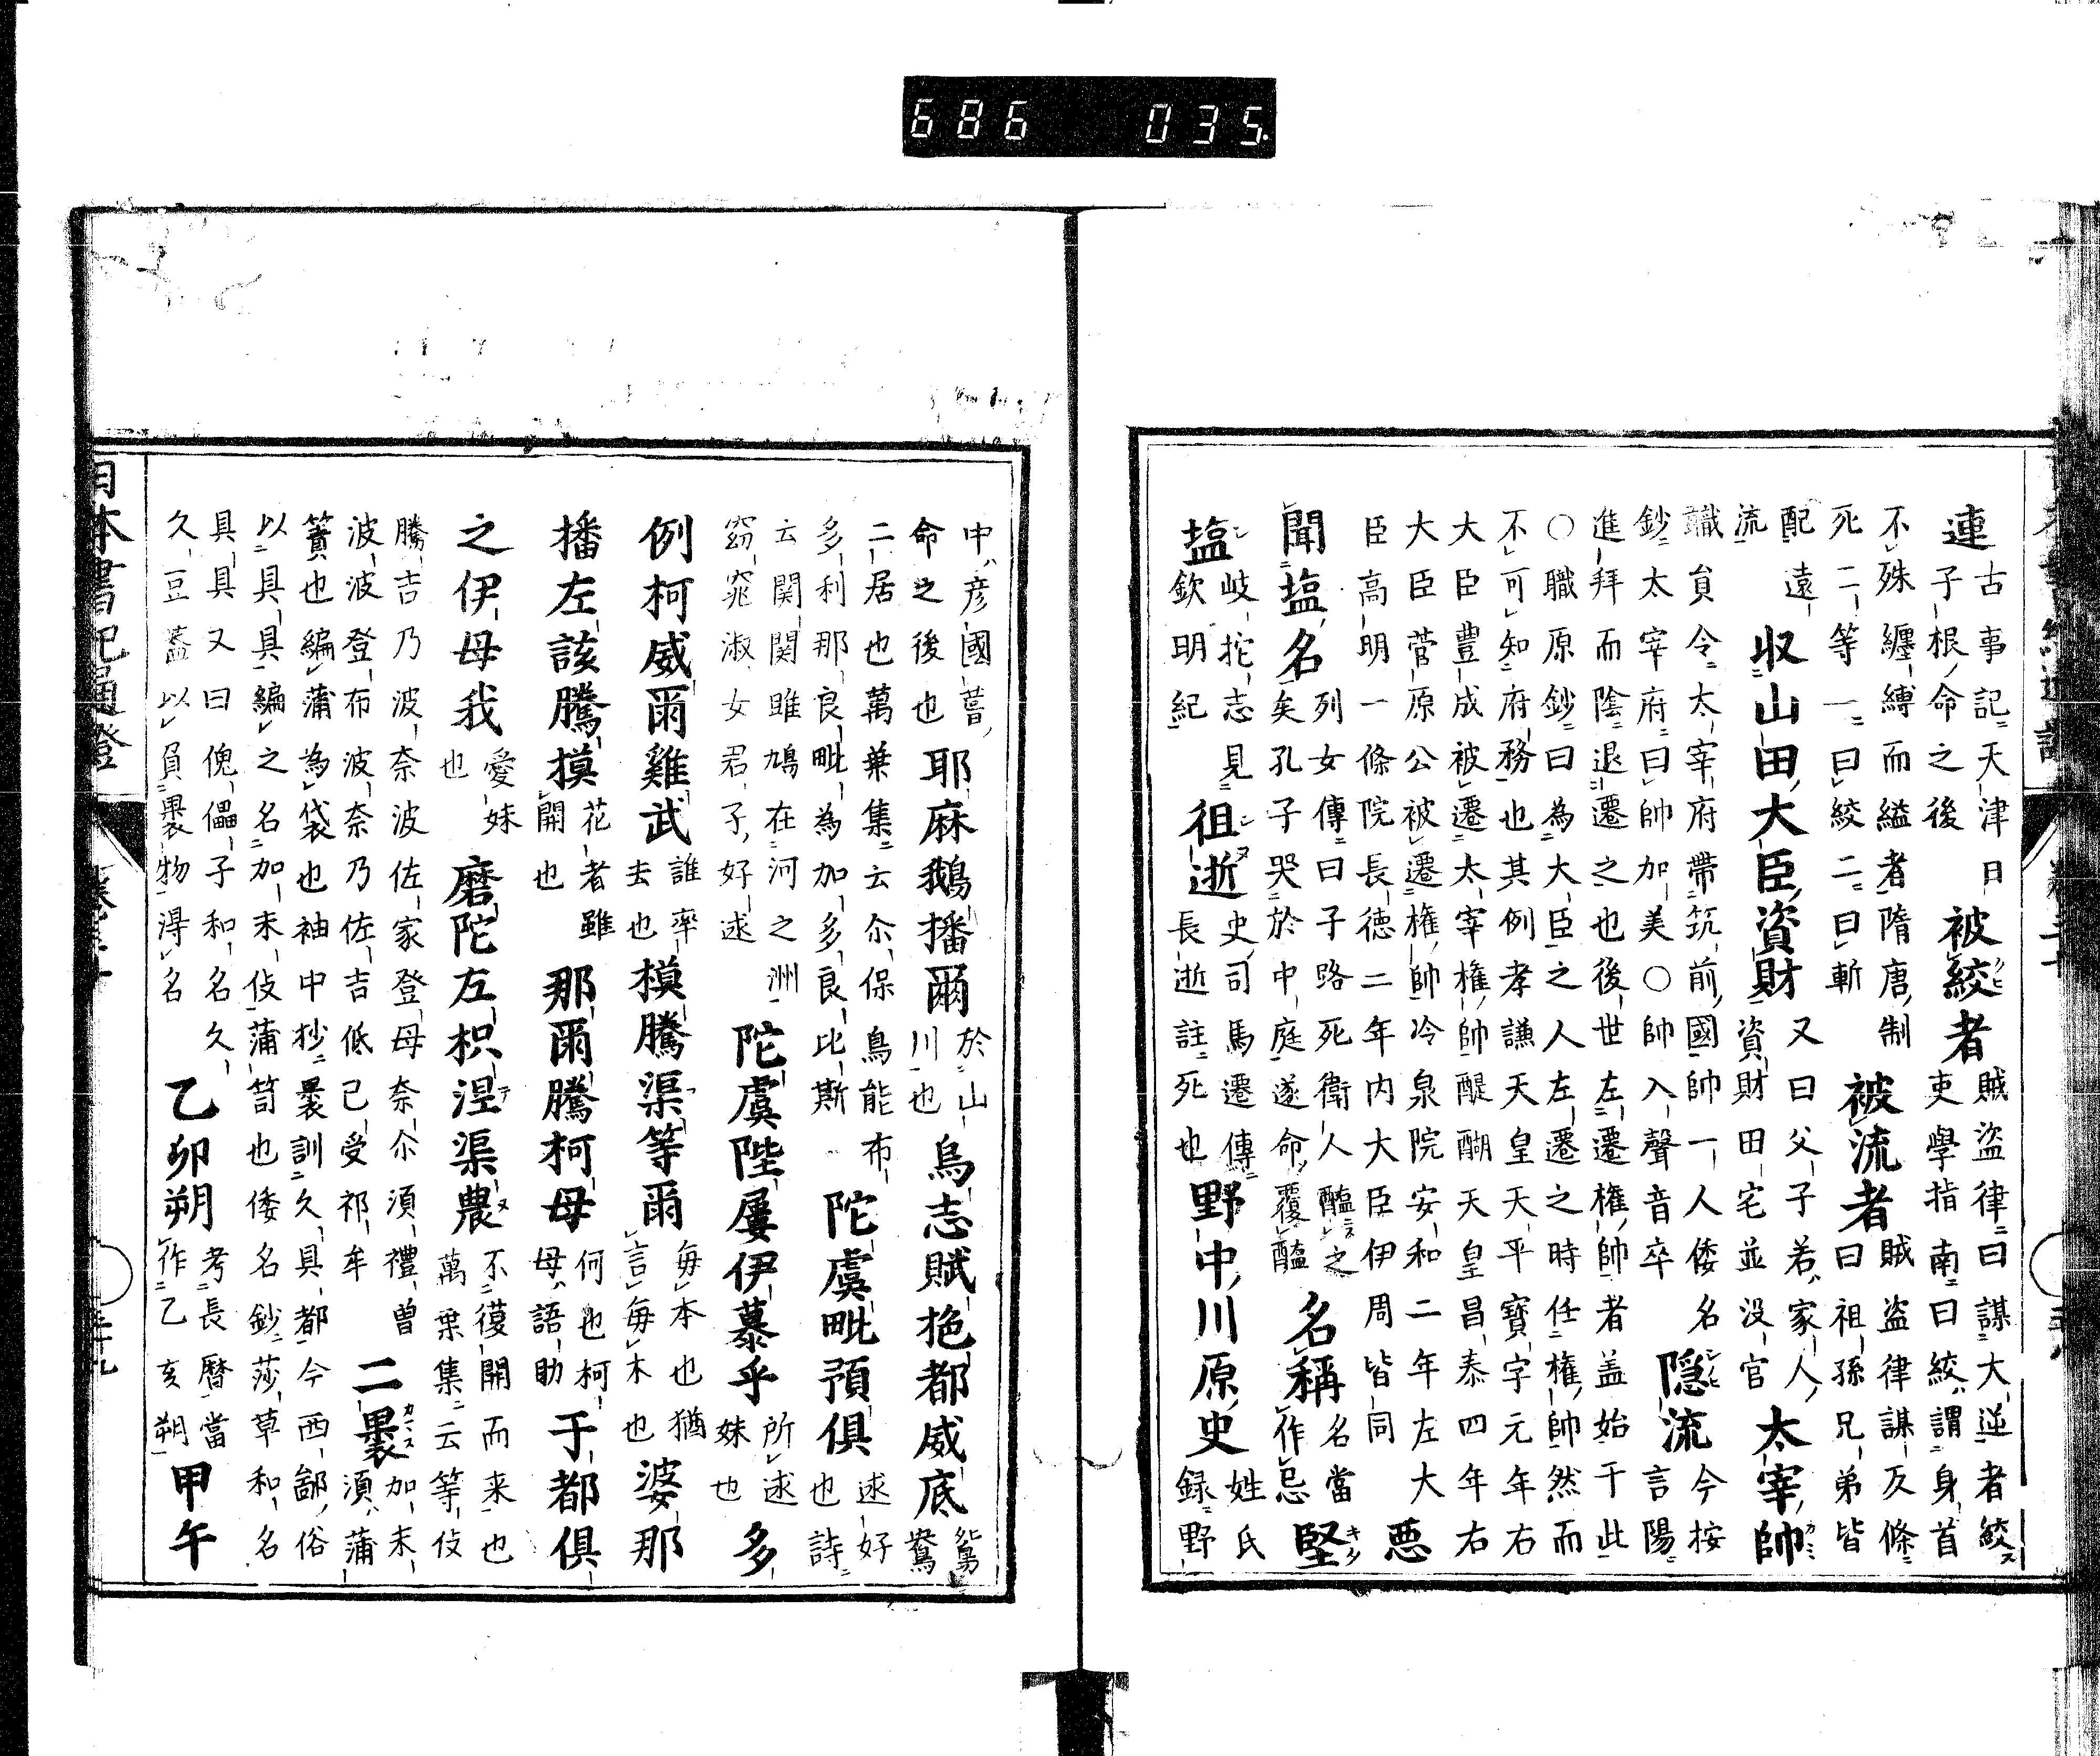 686 035
連 古事記天津日
子根命之後
被絞者
賊盗律曰謀大逆者絞ス
吏學指南曰絞謂身首
不殊纏縛而縊者隋唐制
死二等一曰絞二曰斬
被流者
賊盗律謀反條
曰祖孫兄弟皆
配遠
流
収山田大臣資財
又曰父子若家人
資財田宅並没官
太宰帥
職員令太宰府帶筑前國帥一人倭名
鈔太宰府曰帥加美○帥入聲音卒
隠流
今按
言陽
進拜而陰退遷之也後世左遷權帥者盖始于此
○職原鈔曰為大臣之人左遷之時任權帥然而
不可知府務也其例孝謙天皇天平寶字元年右
大臣豊成被遷太宰權帥醍醐天皇昌泰四年右
大臣菅原公被遷權帥冷泉院安和二年左大
臣高明一條院長徳二年内大臣伊周皆同
悪
聞塩名
列女傳曰子路死衛人醢之
矣孔子哭於中庭遂命覆醢
名稱
名當
作忌
堅
塩
岐拕志見
欽明紀
徂逝
史司馬遷傳
長逝註死也
野中川原史
姓氏
録野
中彦國葺
命之後也
耶麻鵝播爾
於山
川也
烏志賦拖都威底
鴛
鴦
二居也萬葉集云尒保鳥能布
多利那良毗為加多良比斯
陀虞毗預俱
逑好
也詩
云関関雎鳩在河之洲
窈窕淑女君子好逑
陀虞陛屢伊慕乎
所逑
妹也
多
例柯威爾雞武
誰率
去也
模騰渠等爾
毎本也猶
言毎木也
婆那
播左該騰摸
花者雖
開也
那爾騰柯母
何也柯
母語助
于都俱
之伊母我
愛妹
也
磨陀左枳涅渠農
不復開而来也
萬葉集云等伎
騰吉乃波奈波佐家登母奈尒須禮曽
波波登布波奈乃佐吉低己受祁牟
二褁
加末
須蒲
簀也編蒲為袋也袖中抄褁訓久具都今西鄙俗
以具具編之名加末伎蒲笥也倭名鈔莎草和名
具具又曰傀儡子和名久
久豆蓋以負褁物得名
乙卯朔
考長暦當
作乙亥朔
甲午
日本書紀通證